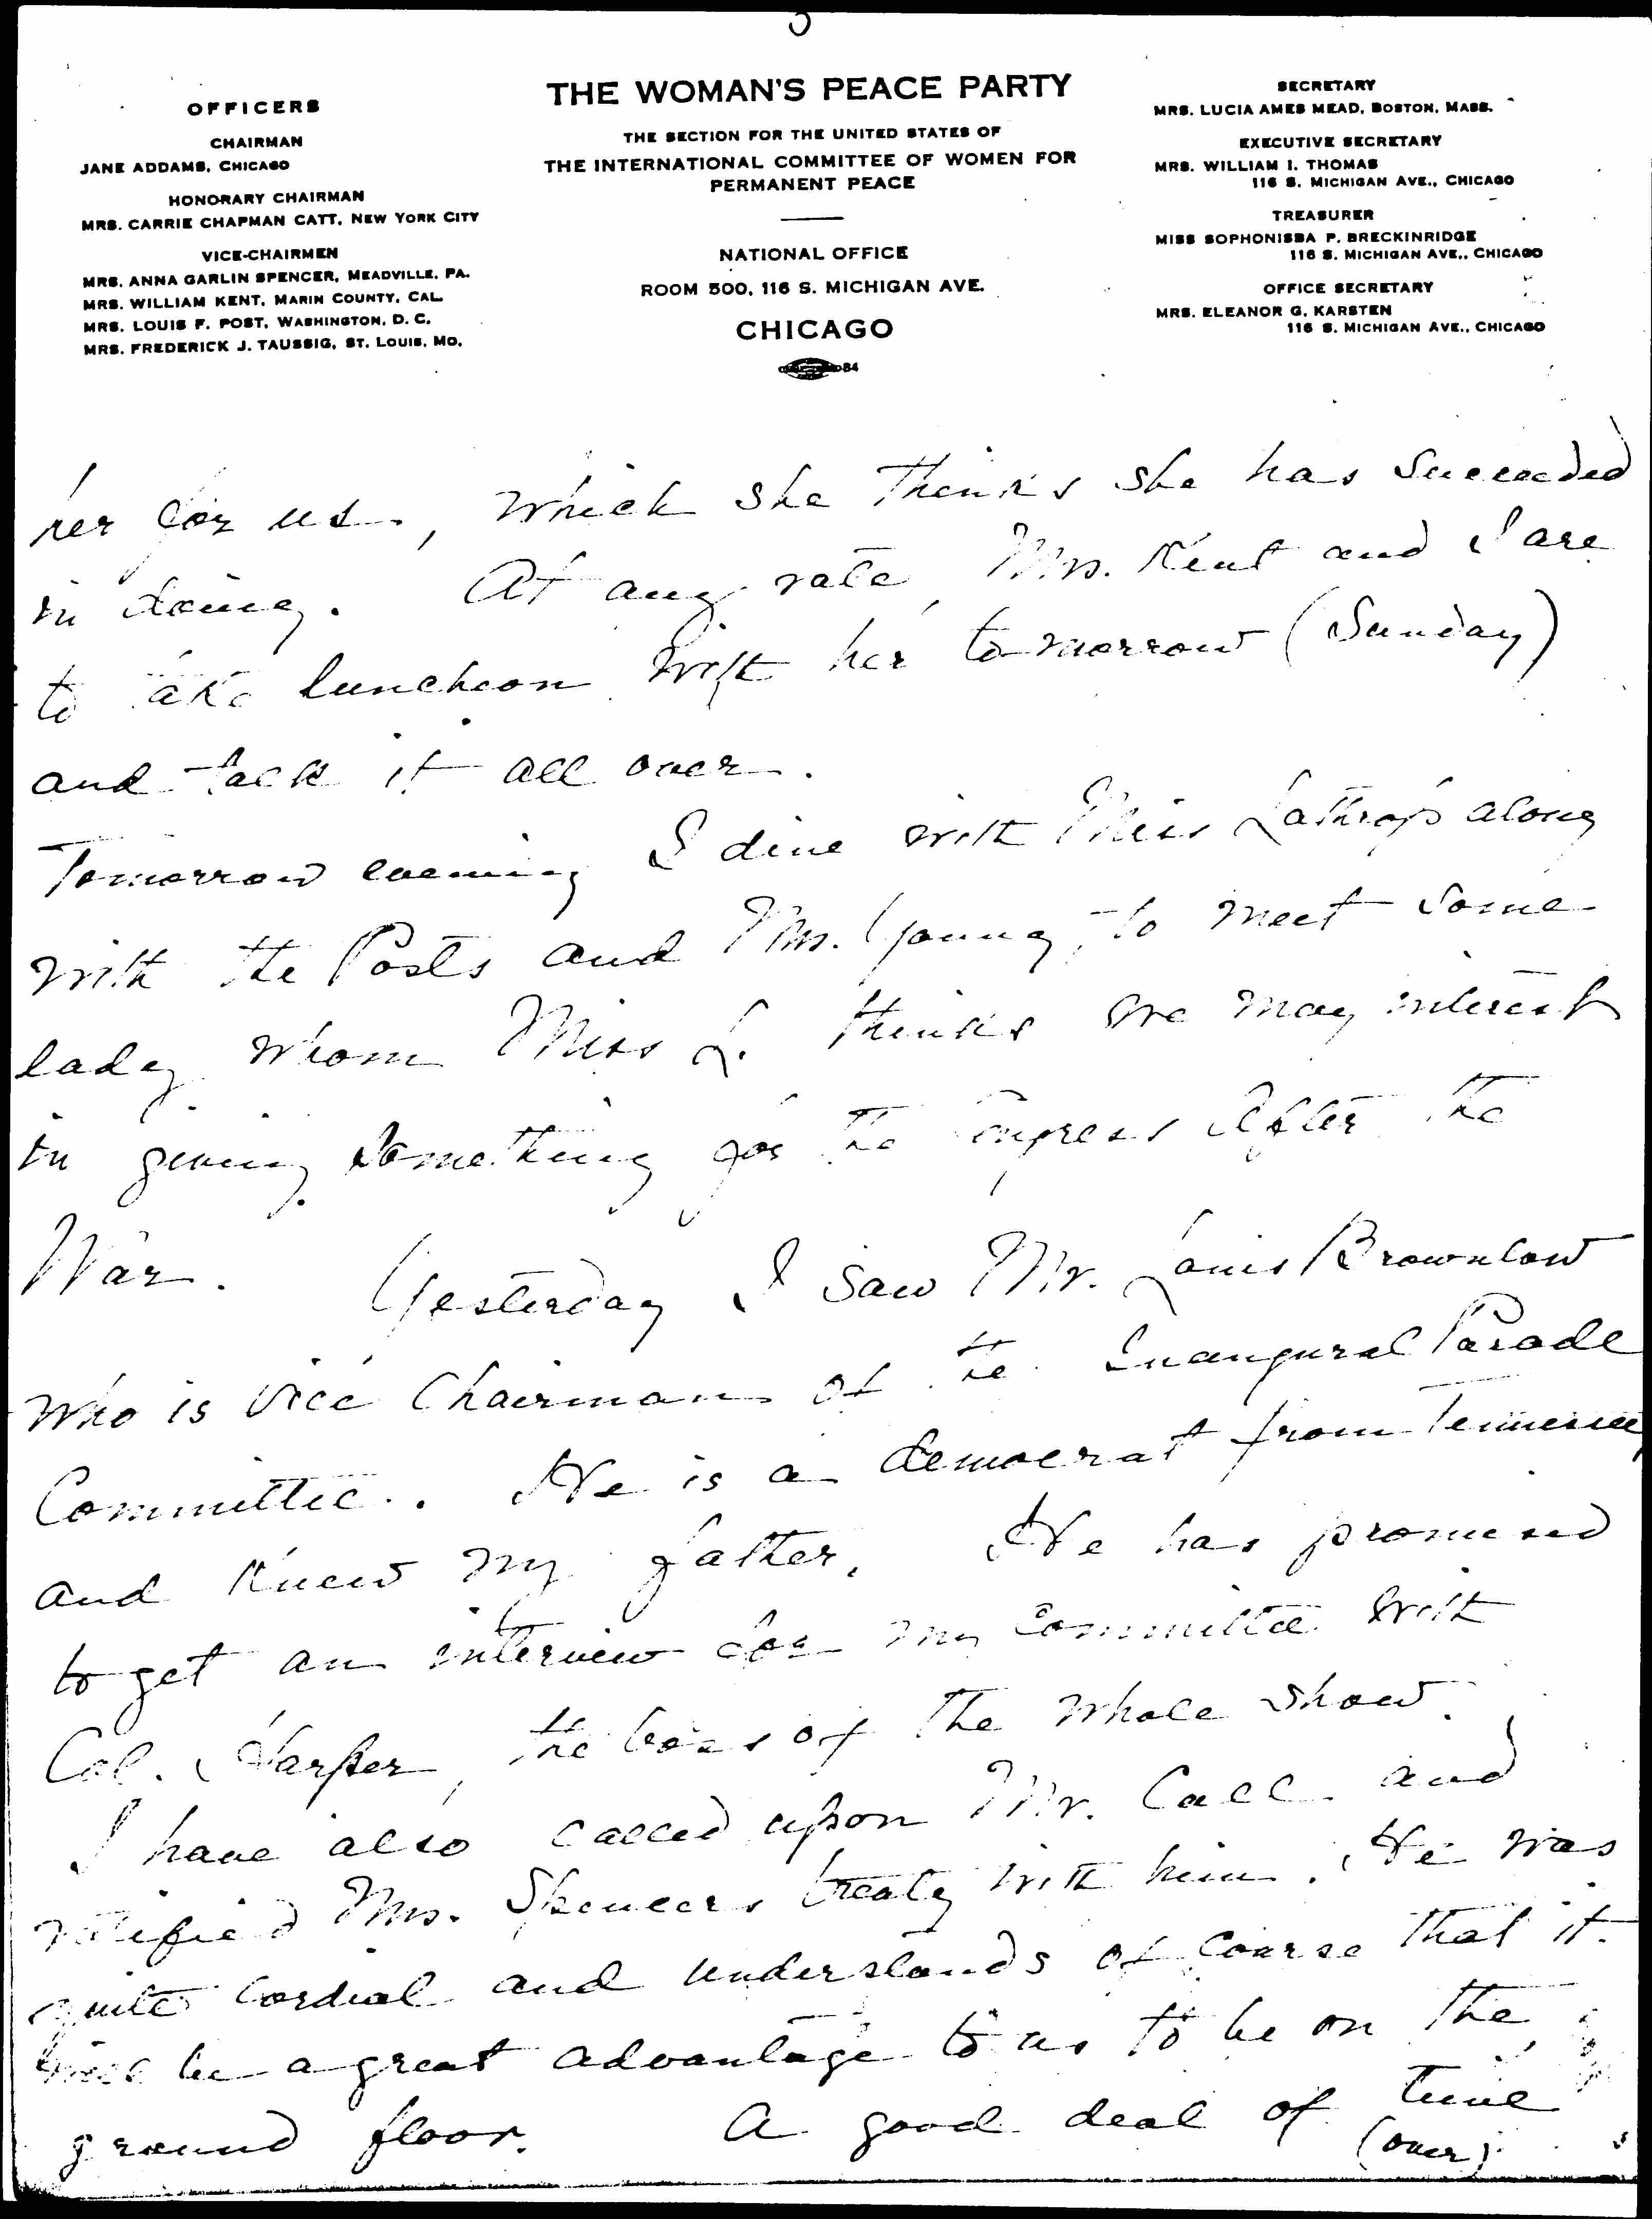 OFFICERS
CHAIRMAN
JANE ADDAMS, CHICAGO
HONORARY CHAIRMAN
MRS. CARRIE CHAPMAN CATT, NEW YORK CITY
VICE-CHAIRMEN
MRS. ANNA GARLIN SPENCER, MEADVILLE, PA.
MRS. WILLIAM KENT, MARIN COUNTY, CAL.
MRS. LOUIS F. POST, WASHINGTON, D. C.
MRS. FREDERICK J. TAUSSIG, ST. LOUIS, MO.
THE WOMAN'S PEACE PARTY
THE SECTION FOR THE UNITED STATES OF
THE INTERNATIONAL COMMITTEE OF WOMEN FOR
PERMANENT PEACE
NATIONAL OFFICE
ROOM 500, 116 S. MICHIGAN AVE.
CHICAGO
84
SECRETARY
MRS. LUCIA AMES MEAD, BOSTON, MASS.
EXECUTIVE SECRETARY
MRS. WILLIAM I. THOMAS
116 S. MICHIGAN AVE., CHICAGO
TREASURER
MISS SOPHONISBA P. BRECKINRIDGE
116 S. MICHIGAN AVE., CHICAGO
OFFICE SECRETARY
MRS. ELEANOR G. KARSTEN
116 S. MICHIGAN AVE., CHICAGO
her for us, which she thinks she has succeeded
in doing. At any rate, Mrs. Kent and I are
to take luncheon with her to-morrow (Sunday)
and talk it all over.
Tomorrow evening I dine with Miss Lathrop along
with the Posts and Mrs. Young, to meet some
lady whom Miss L. thinks we may interest
in giving something for the Congress After the
War. Yesterday I saw Mr. Louis Brownlow
who is vice Chairman of the Inaugural Parade
Committee. He is a democrat from Tennessee,
and knew my father. He has promised
to get an interview for my Committee with
Col. Harper, the boss of the whole show.
I have also called upon Mr. Call and
ratified Mrs. Spencers treaty with him. He was
quite cordial and understands of course that it
will be a great advantage to us to be on the
ground floor. A good deal of time
(over)